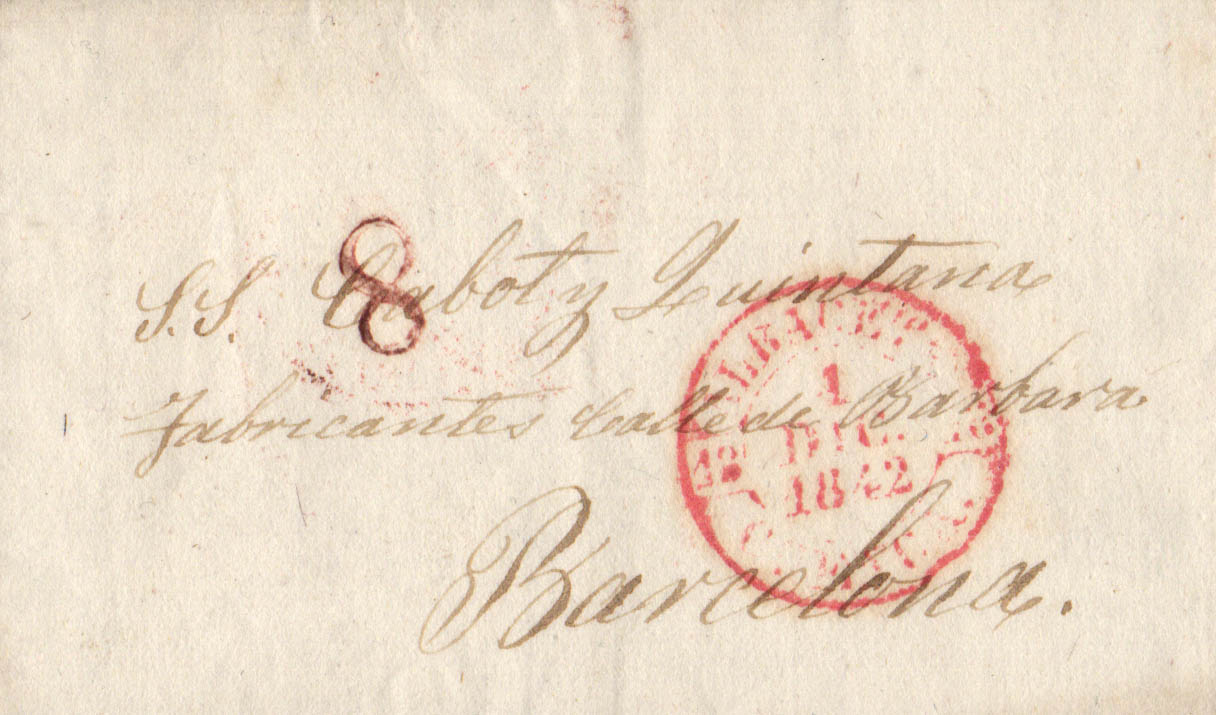 8
S.S. Cabot y Quintana
Fabricantes Calle de Barbara
Barcelona.
1
DIC.
1842